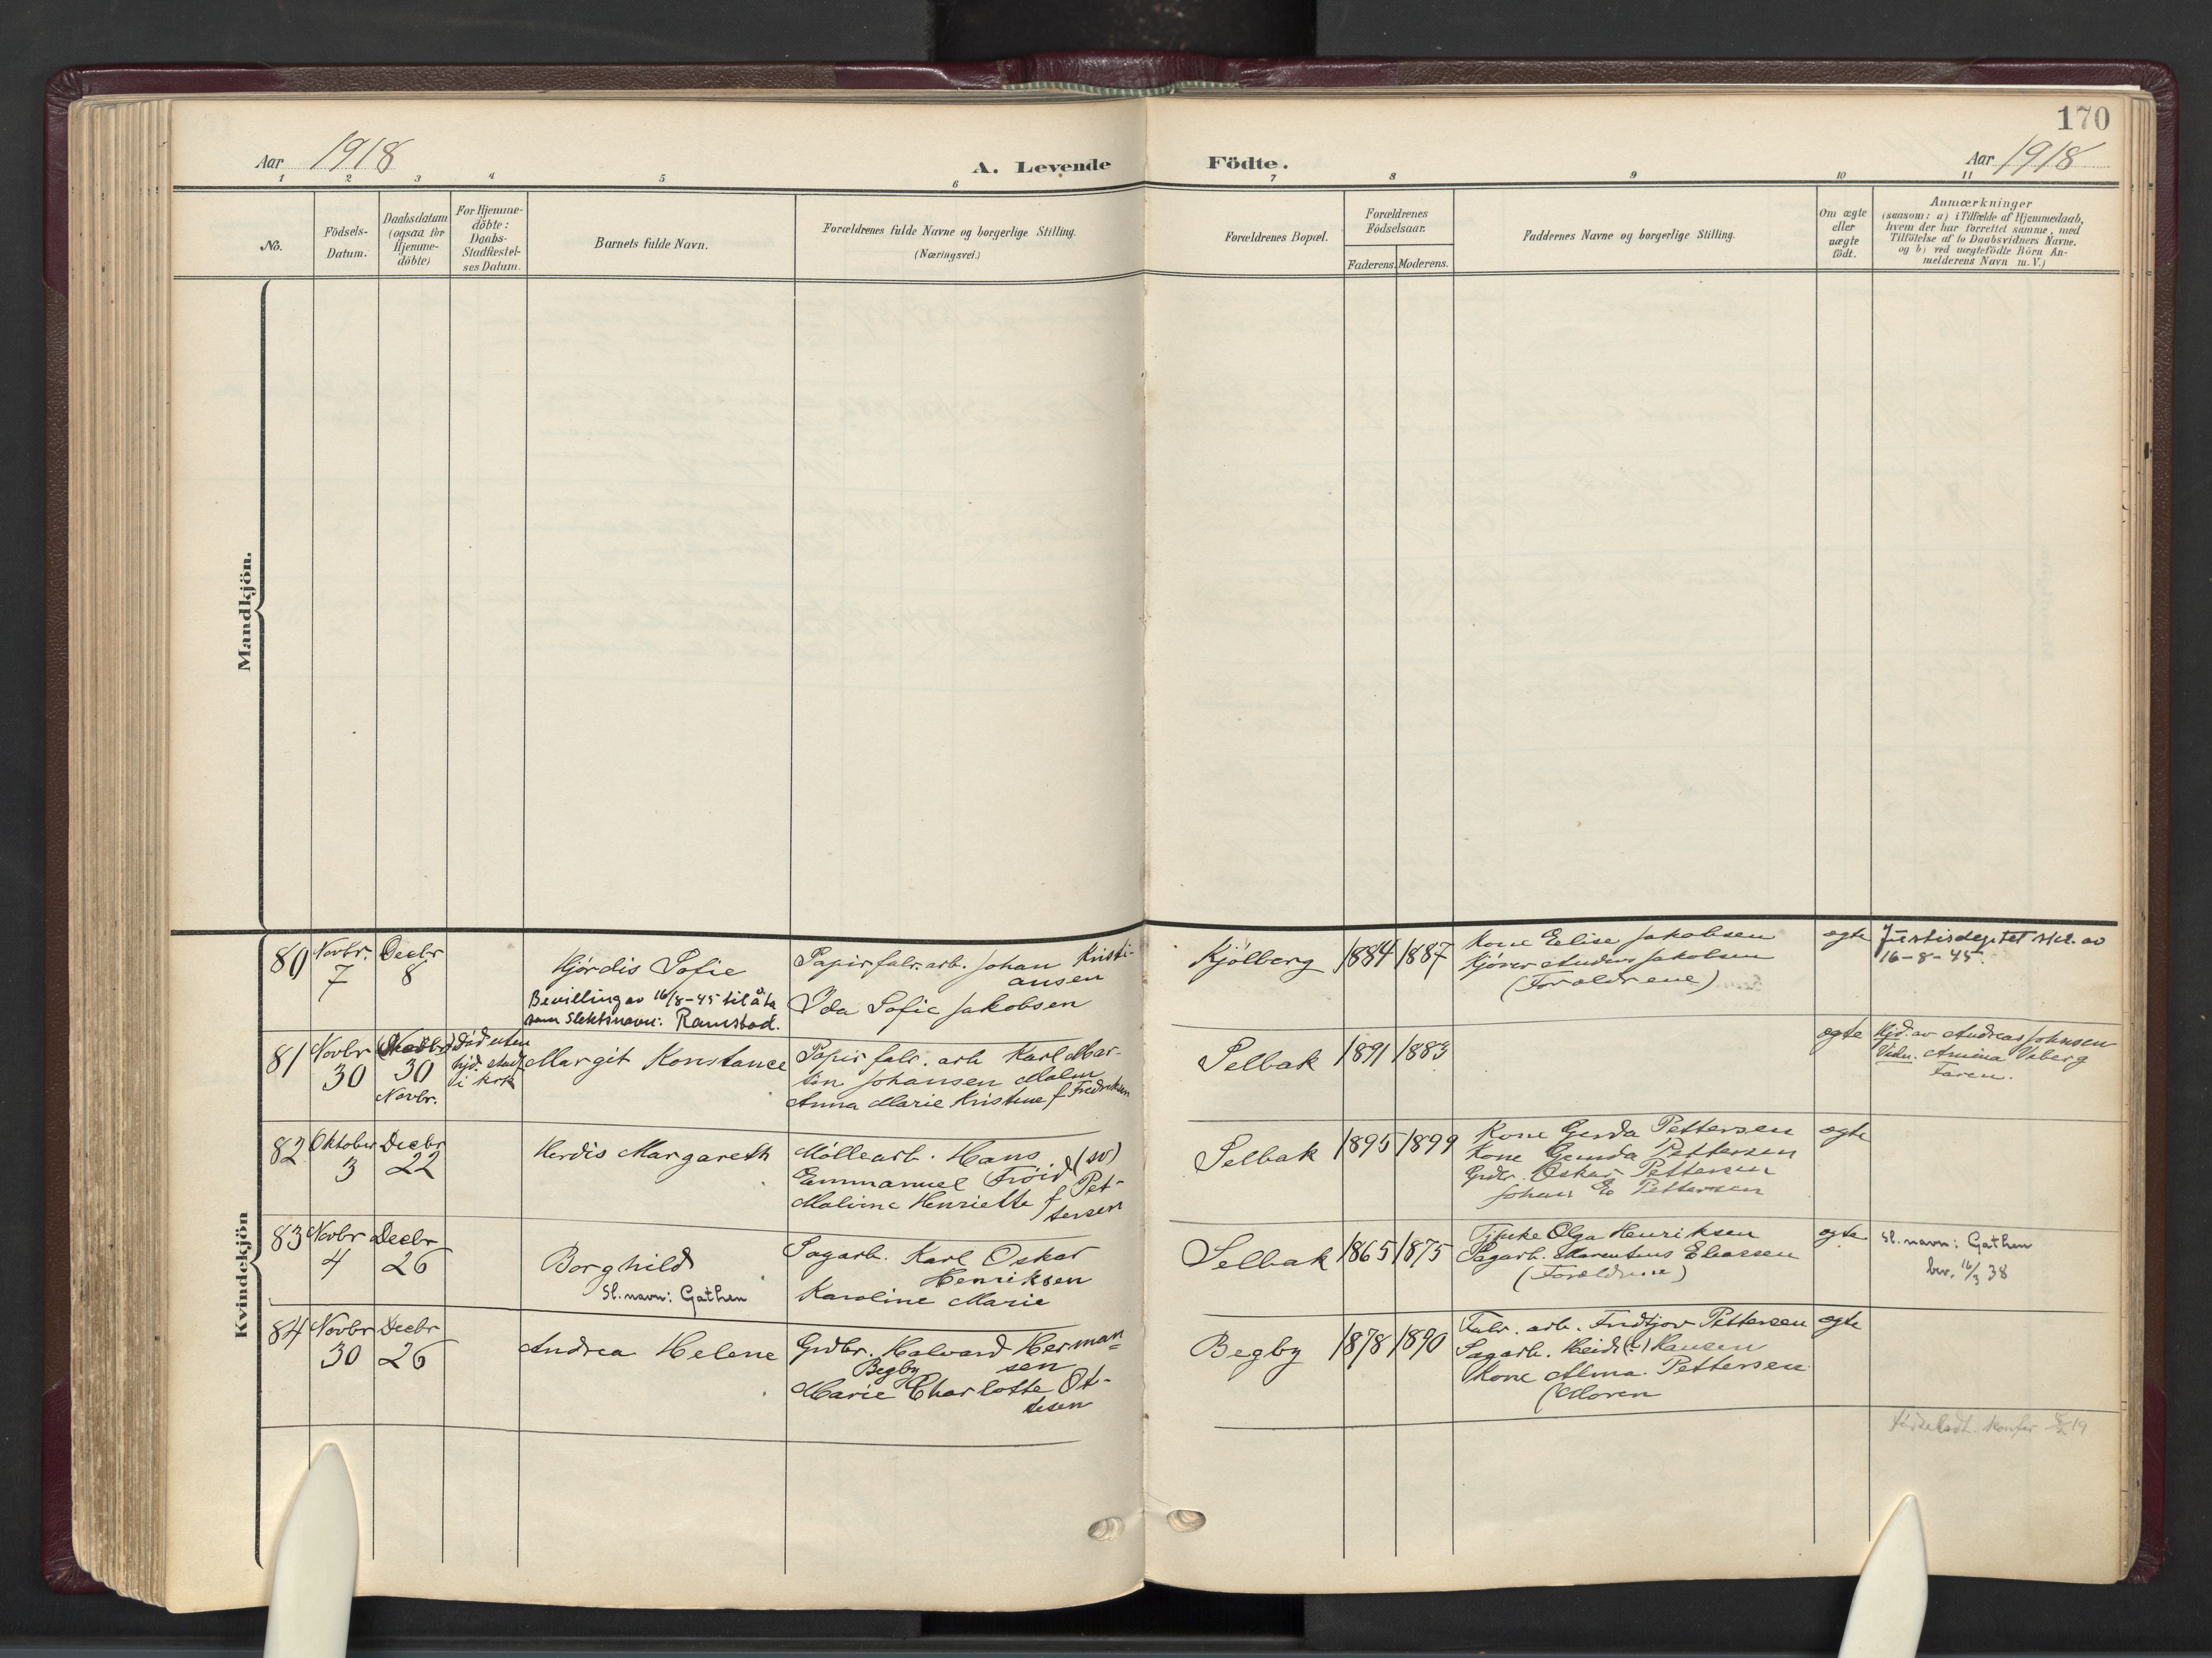 170
Aar 1918
A. Levende Födte.
Aar 1918
1 2 3 4 5 6 7 8 9 10 11
No.
Födsels-
Datum.
Daabsdatum
(ogsaa for
Hjemme-
döbte)
For Hjemme-
döbte:
Daabs-
Stadfæstel-
ses Datum.
Barnets fulde Navn.
Forældrenes fulde Navne og borgerlige Stilling.
(Næringsvei.)
Forældrenes Bopæl.
Forældrenes
Födselsaar.
Faderens. Moderens.
Faddernes Navne og borgerlige Stilling.
Om ægte
eller
uægte
födt.
Anmærkninger
(saasom: a) i Tilfælde af Hjemmedaab,
hvem der har forrettet samme, med
Tilföielse af to Daabsvidners Navne.
og b) ved uægtefödte Börn An-
melderens Navn m. V.)
Mandkjön.
Kvindekjön
80
Novbr.
7
Decbr
8
Hjørdis Sofie
Bevilling av 16/8-45 til å ta
som slektsnavn: Ramstad.
Papirfabr. arb. Johan Kristi-
ansen
Ida Sofie Jakobsen
Kjölberg
1884
1887
Kone Elise Jakobsen
Kjører Anders Jakobsen
(Forældrene)
ægte
Justisdeptet skr. av
16-8-45.
81
Novbr
30
30
Novbr.
Död uten
hjd. stadf.
i kirk
Margit Konstance
Papirfabr. arb Karl Mar-
tin Johansen Malm
Anna Marie Kristine f Fredriksen
Selbak
1891
1883
ægte
Hjd. av Andreas Johnsen
Vidn. Amina Viberg
Faren.
82
Oktober
3
Decbr
22
Herdis Margareth
Møllearb. Hans
Emmanuel Fröid (sv)
Maline Henriette f Pet-
tersen
Selbak
1895
1899
Kone Gerda Pettersen
Kone Gunda Pettersen
Grdbr. Oskar Pettersen
Johan E. Pettersen
ægte
83
Novbr
4
Decbr
26
Borghild
Sl. navn: Gathen
Sagarb. Karl Oskar
Henriksen
Karoline Marie
Selbak
1865
1875
Pike Olga Henriksen
Sagarb. Marentius Eliassen
(Forældrene)
ægte
Sl. navn: Gathen
bev. 16/3 38
84
Novbr
30
Decbr
26
Andrea Helene
Grdbr. Halvard Herman=
Begby sen
Marie Charlotte Ot-
tesen
Begby
1878
1890
Fabr. arb. Fridtjov Pettersen
Sagarb. Hansen
Kone Alma Pettersen
(Moren
ægte